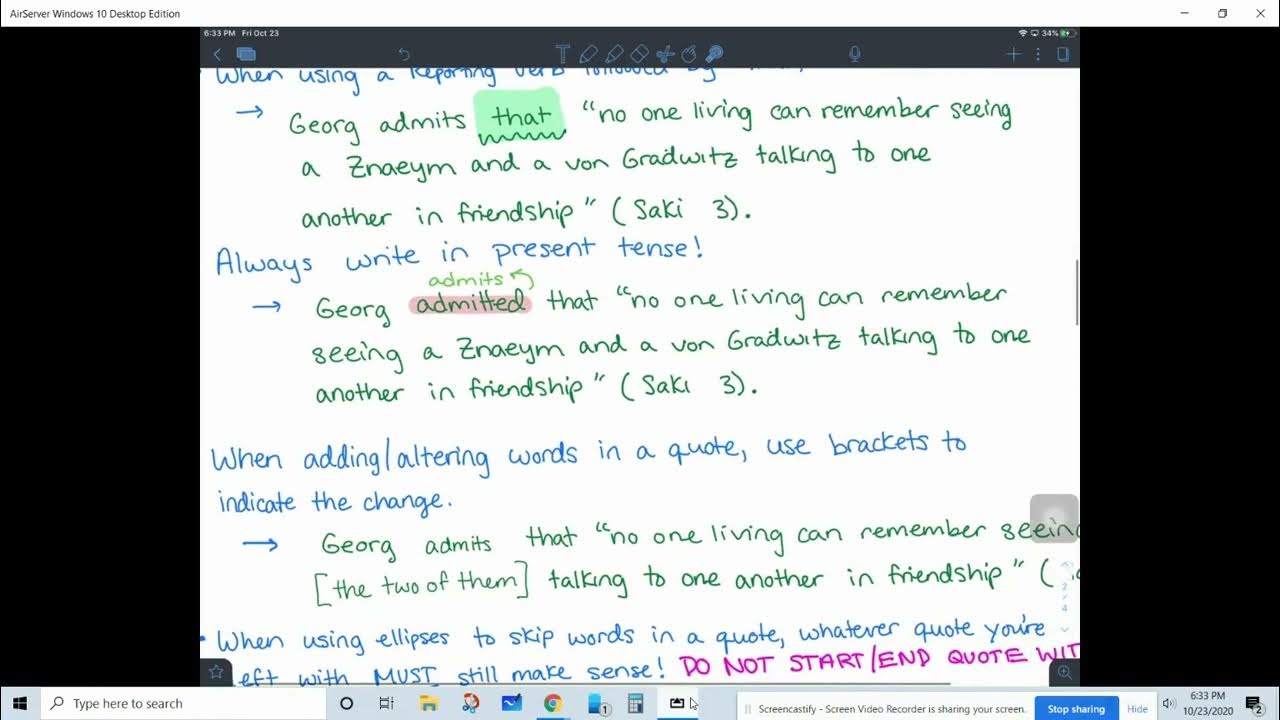 AirServer Windows 10 Desktop Edition
6:33 PM Fri Oct 23
34%
When using a Reporting verb followed by
→ Georg admits that “no one living can remember seeing
a Znaeym and a von Gradwitz talking to one
another in friendship” (Saki 3).
Always write in present tense!
admits
→ Georg admitted that “no one living can remember
seeing a Znaeym and a von Gradwitz talking to one
another in friendship” (Saki 3).
When adding/altering words in a quote, use brackets to
indicate the change.
→ Georg admits that “no one living can remember seeing
[the two of them] talking to one another in friendship” (
2
/
4
• When using ellipses to skip words in a quote, whatever quote you're
left with MUST still make sense! DO NOT START/END QUOTE WIT
Type here to search
1
Screencastify - Screen Video Recorder is sharing your screen.
Stop sharing
Hide
6:33 PM
10/23/2020
2